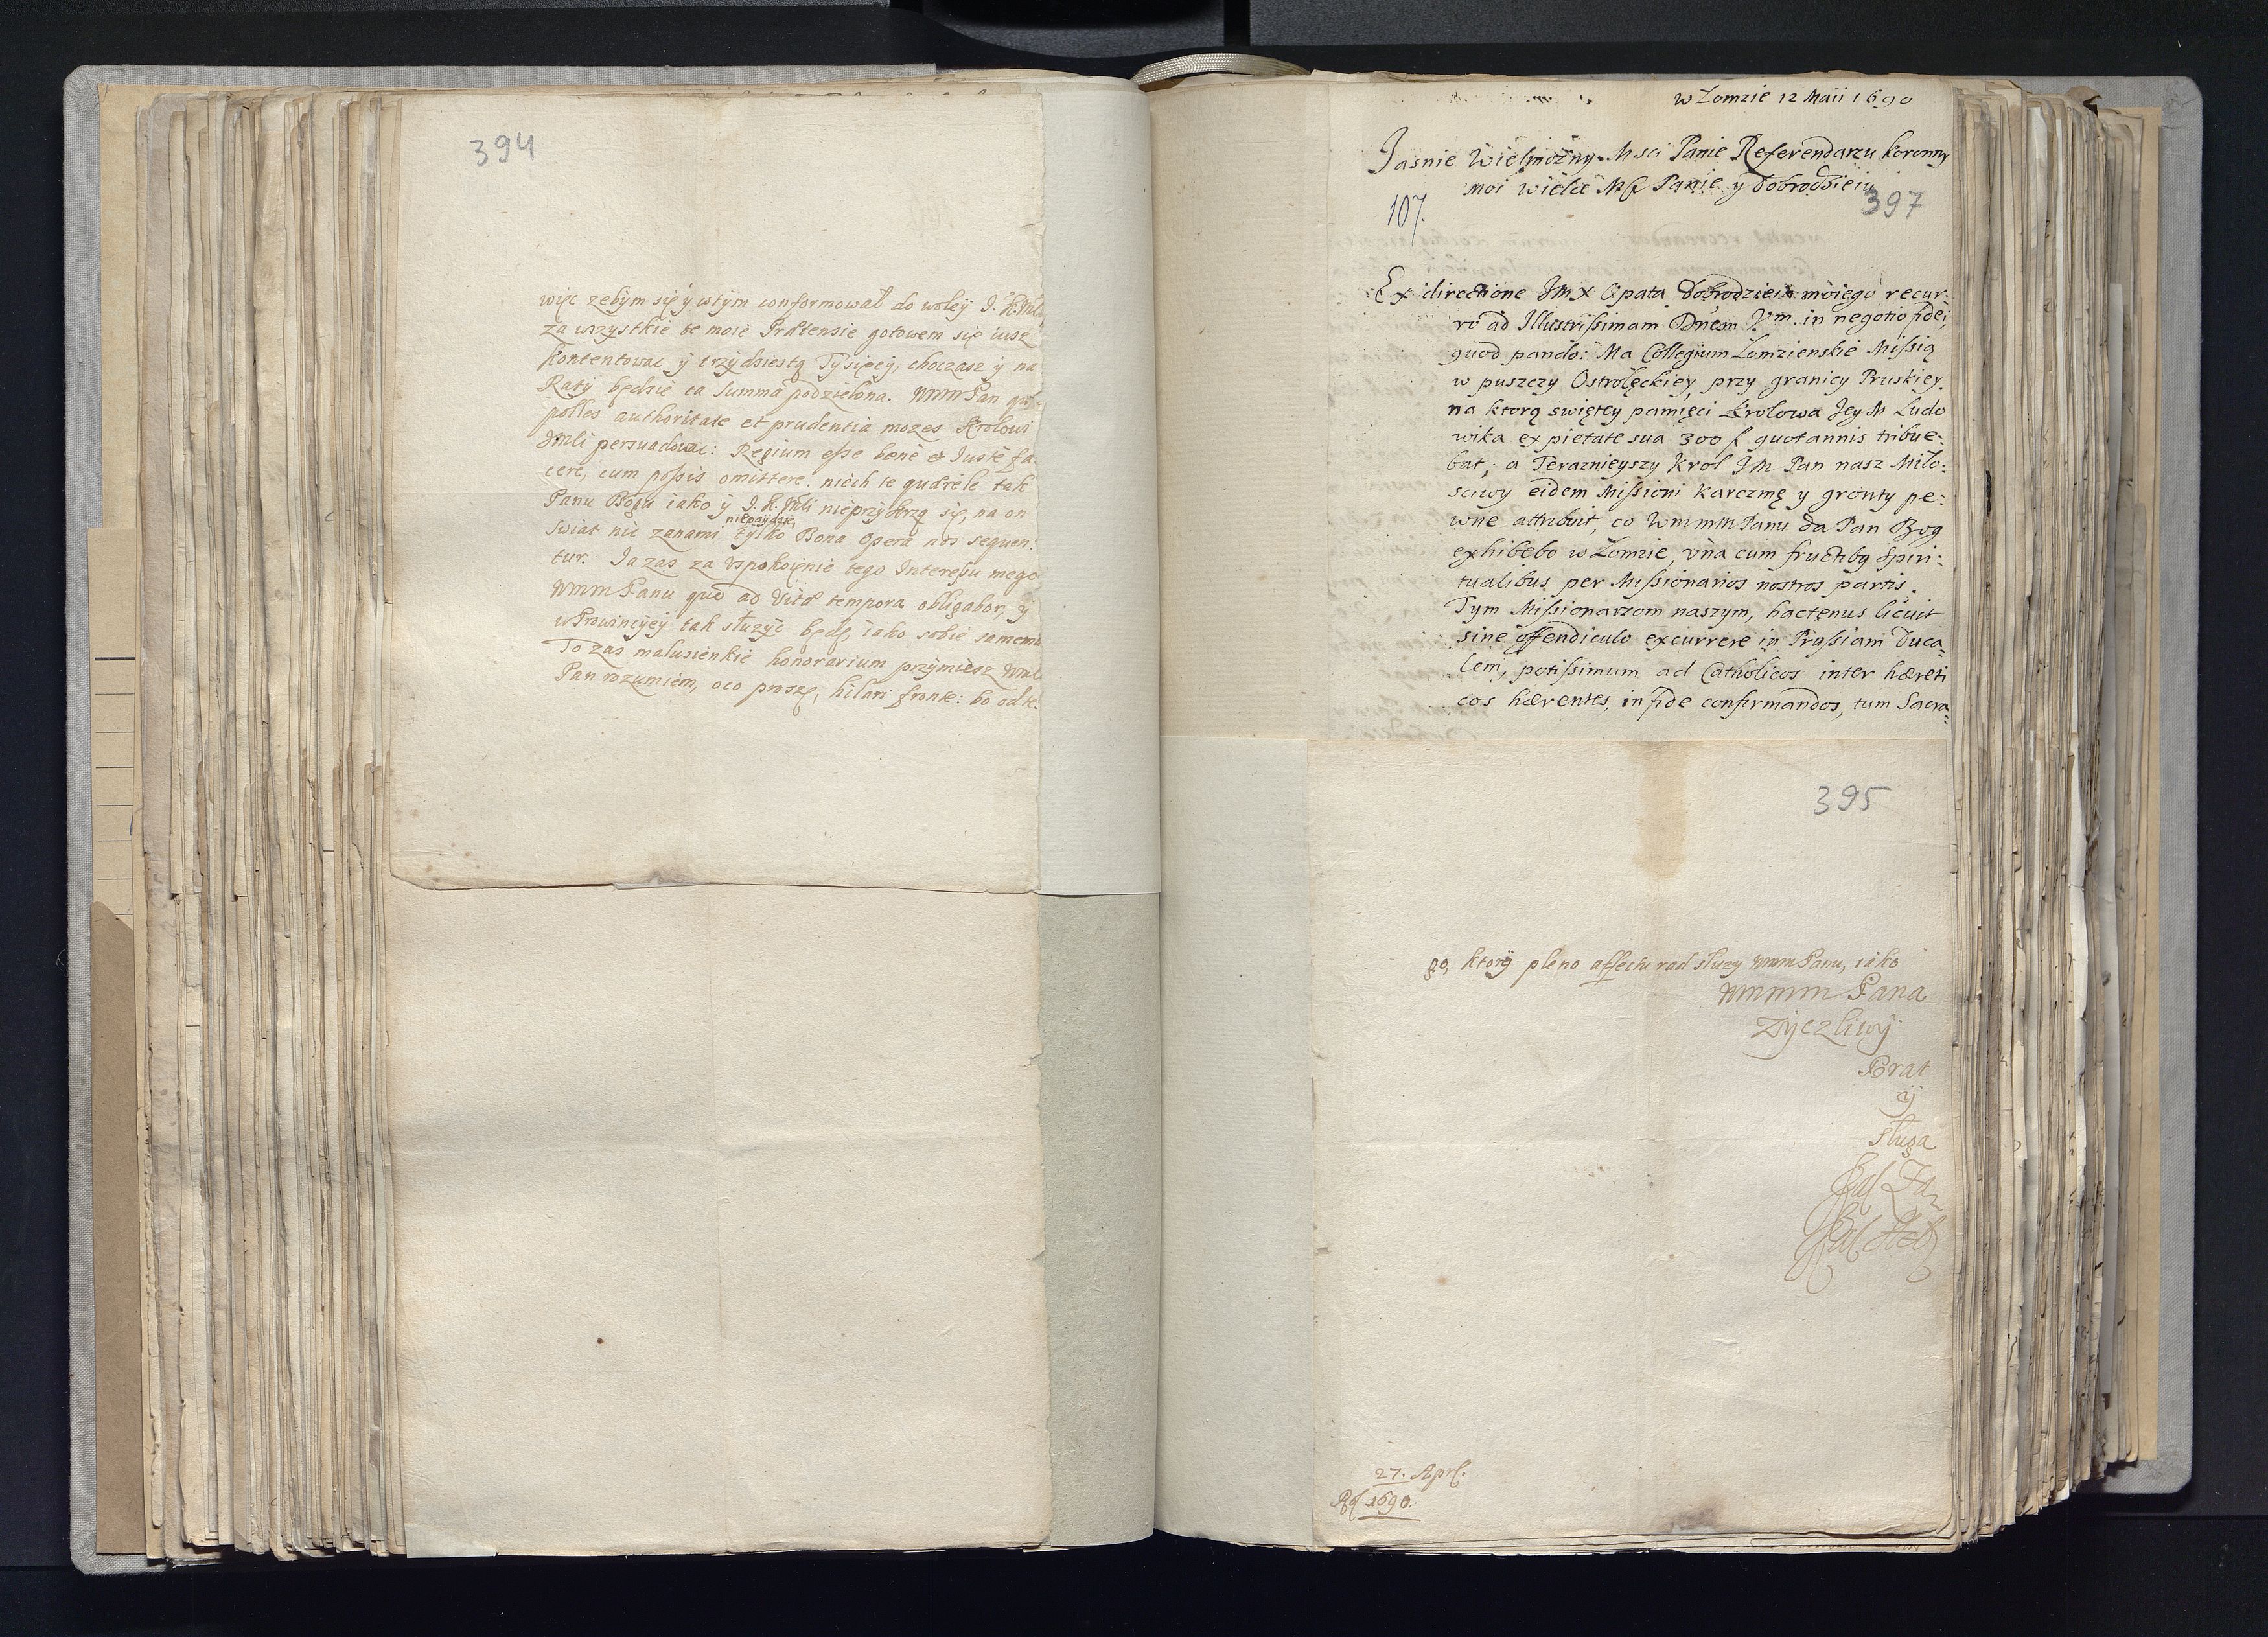 394
więc zebym się y wtym conformował do woleÿ J. K. Mli
za wszystkie te moie Prætensie gotowem się iusz
kontentowac ÿ trzydziestą Tysięcÿ, choczasz ÿ na
Ratÿ będzie ta summa podzielona. WmmPan
polles authoritate et prudentia mozes Krolowi
Jmli persuadowac: Regium esse bene et Iuste fa-
cere, cum possis omittere. niech te quærele tak
Panu Bogu iako ÿ J. K. Mli nieprzÿkrzą się, na on
swiat nic zanami niepoÿdzie, tÿlko Bona Opera nos sequen:
tur. Ja zas za Vspokoienie tego Interessu mego
WmmPanu quo ad Vitæ tempora obligabor, ÿ
wProwincÿeÿ tak służÿc będę, iako sobie samemu
To zas malusienkie honorarium przÿmiesz
Pan rozumiem, oco proszę, hilari fronte: bo odte:
w Łomzie 12 Maii 1690
Jasnie Wielmożny Msci Panie Referendarzu koronny
moi wielce Msc Panie y Dobrodzieiu
107.
397
Ex directione JMX Opata Dobrodzieia moiego recur:
ro ad Illustrissimam Dnem Vrm. in negotio fidei,
quod pando: Ma Collegium Łomzienskie Missią
w puszczy Ostrołęckiey, przy granicy Pruskiey.
na ktorą swiętey pamięci krolowa Jey M Ludo
wika ex pietate sua 300 f quotannis tribue:
bat, a Teraznieyszy krol JM Pan nasz Miło:
sciwy eidem Missioni karczmę y gronty pe:
wne attribuit, co WmmmPanu da Pan Bog
exhibebo w Łomzie, vna cum fructibq spiri:
tualibus per Missionarios nostros partis.
Tym Missionarzom naszym, hactenus licuit
sine offendiculo excurrere in Prussiam Duca-
lem, potissimum ad Catholicos inter hæreti
cos hærentes, in fide confirmandos, tum Sacra-
395
go, ktorÿ pleno affectu rad słuzy WmmPanu, iako
Wmmm Pana
Zÿczliwÿ
Brat
ÿ
Sługa
27. Apri.
1690.